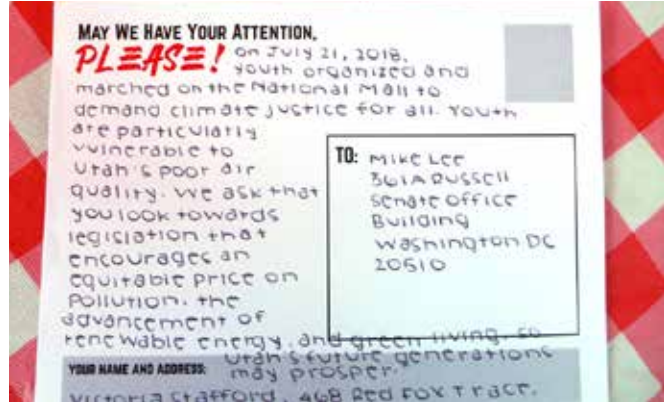 MAY WE HAVE YOUR ATTENTION,
PLEASE! on July 21, 2018,
youth organized and
marched on the National Mall to
demand climate justice for all. Youth
are particularly
vulnerable to
Utah's poor air
quality. We ask that
you look towards
legislation that
encourages an
equitable price on
pollution, the
advancement of
renewable energy, and green living, so
Utah's future generations
may prosper.
TO: Mike Lee
361A Russell
Senate Office
Building
Washington DC
20510
YOUR NAME AND ADDRESS:
Victoria Stafford, 468 Red Fox Trace,